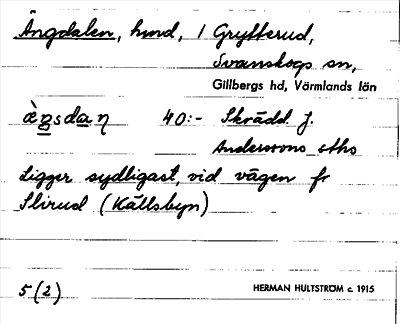 Ängdalen, hmd, i Grytterud,
Svanskogs sn,
Gillbergs hd, Värmlands län
40:- Skrädd. J.
Anderssons sths
Ligger sydligast, vid vägen fr
Slirud (Källsbyn)
5(2)
HERMAN HULTSTRÖM c. 1915